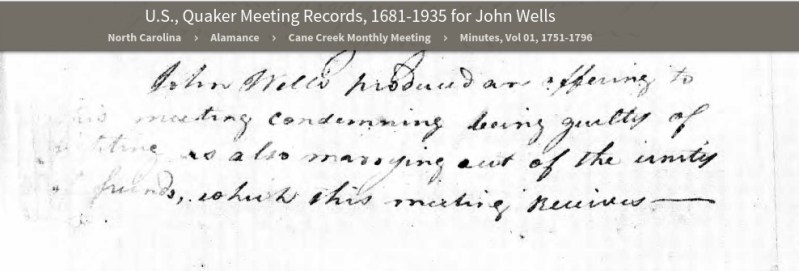 U.S., Quaker Meeting Records, 1681-1935 for John Wells
North Carolina > Alamance > Cane Creek Monthly Meeting > Minutes, Vol 01, 1751-1796
John Wells produced an offering to
meeting condemning being guilty of
as also marrying out of the unity
of friends, which this meeting Receives —